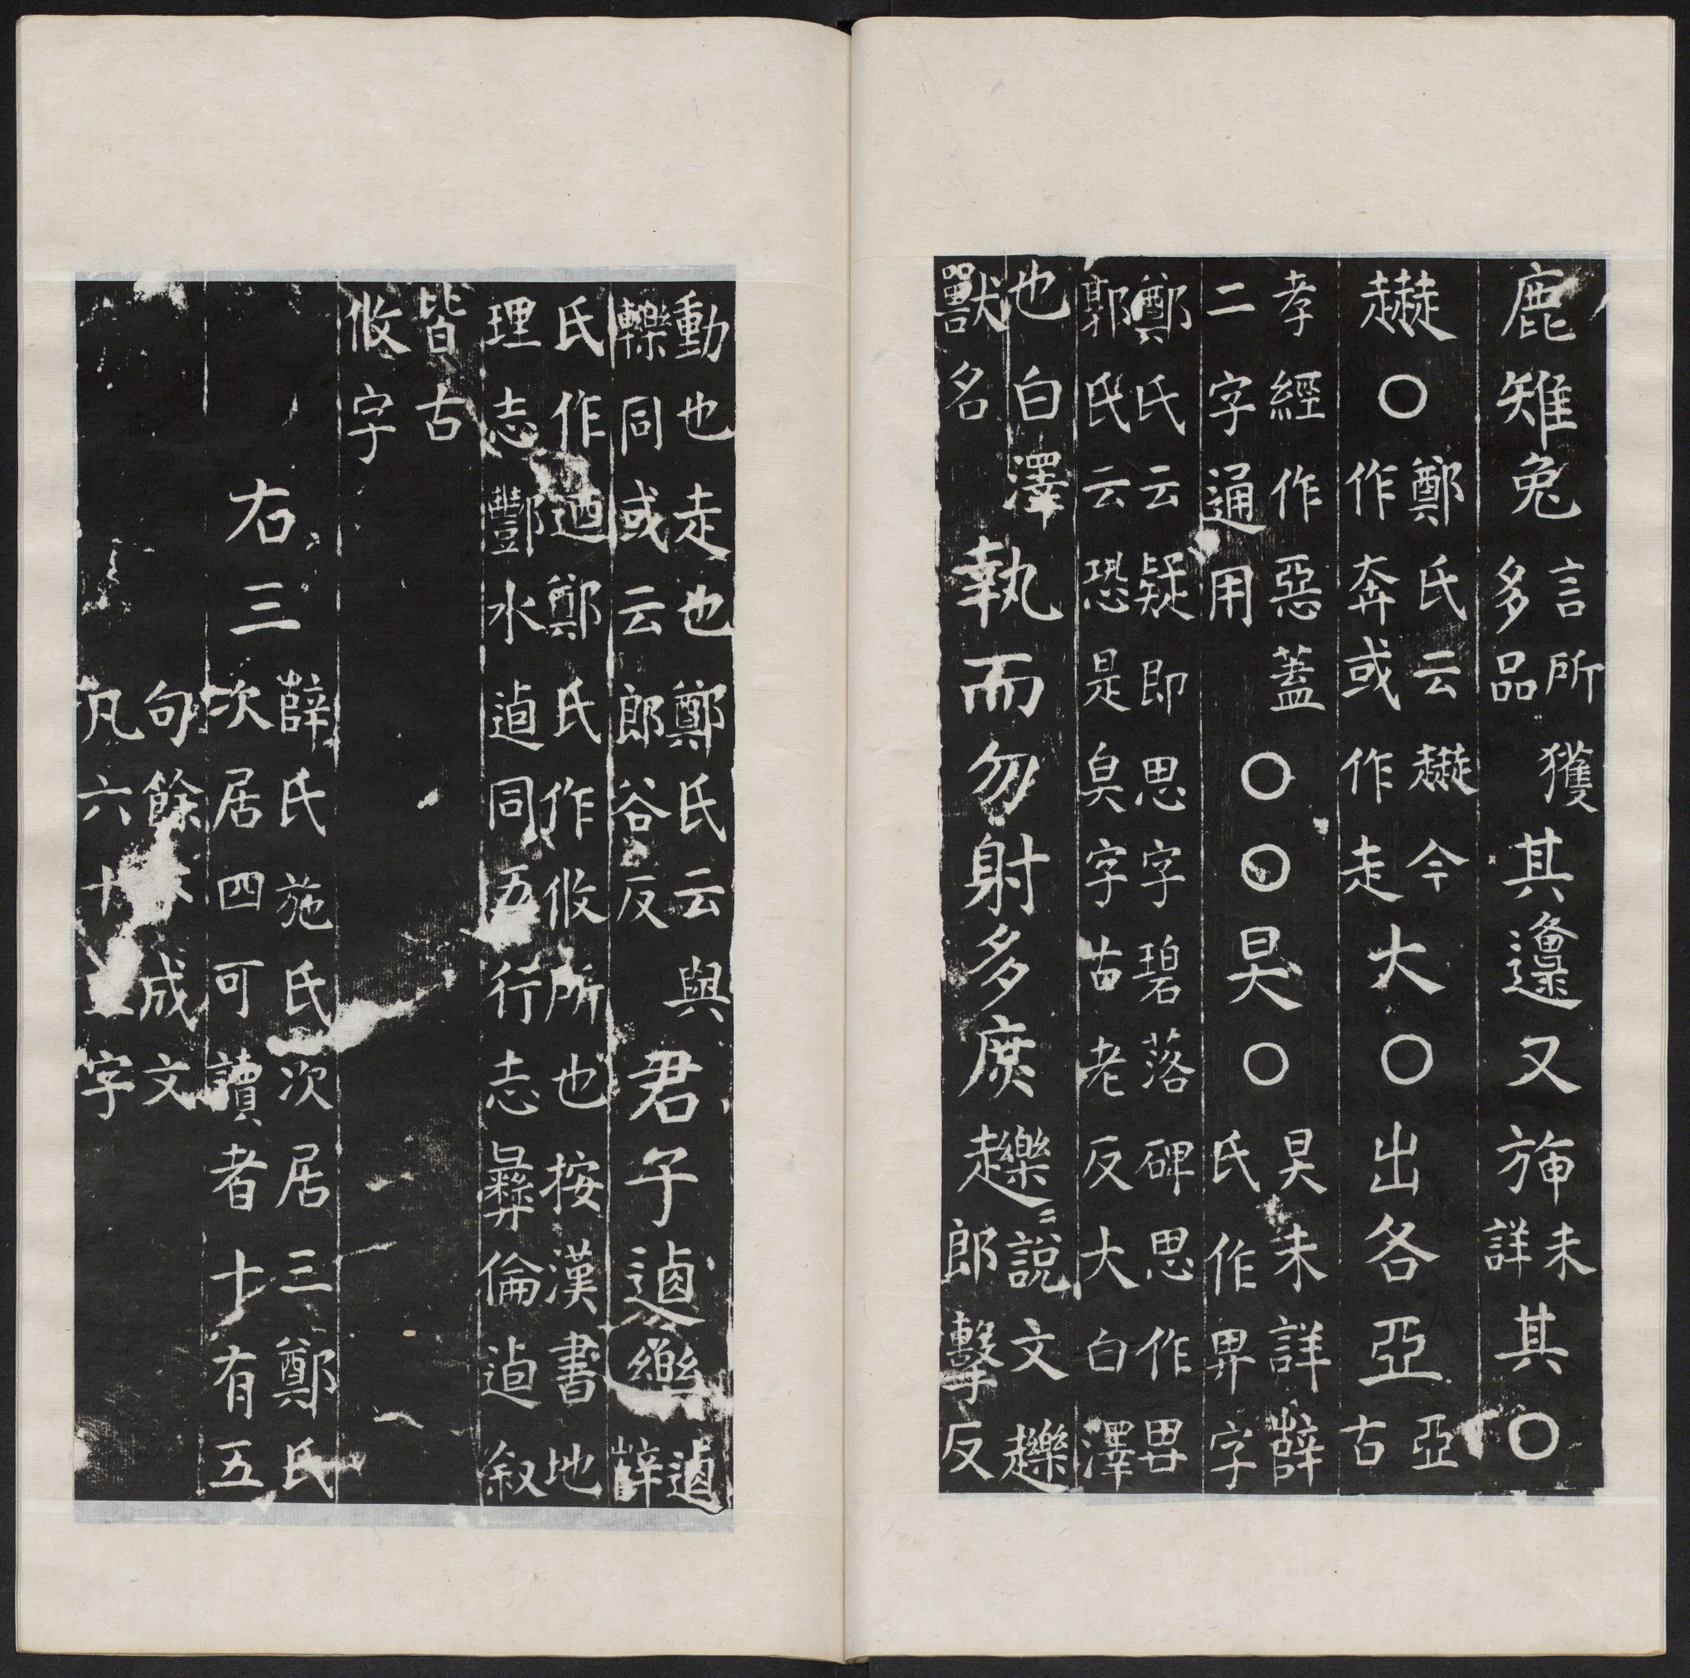 鹿雉兔言所獲多品其邍又旃未詳其〇
趩〇鄭氏云趩今作奔或作走大〇出各亞亞古
孝經作惡蓋二字通用〇〇昊〇昊未詳薛氏作界字
鄭氏云疑即思字碧落碑思作𤰞郭氏云恐是臭字古老反大白澤
也白澤獸名執而勿射多庶趮說文趮郎擊反
動也走也鄭氏云與轢同或云郎谷反君子逌樂逌薛
氏作迺鄭氏作攸所也按漢書地理志酆水逌同五行志彝倫逌叙
皆古攸字
右三薛氏施氏次居三鄭氏次居四可讀者十有五
句餘不成文凡六十五字